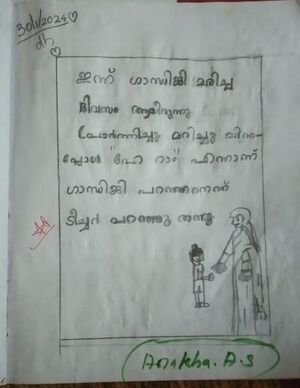 30/1/2024
ഇന്ന് ഗാന്ധിജി മരിച്ച
ദിവസം ആയിരുന്നു.
പ്രാർത്ഥിച്ചു മറിച്ചു വീണ-
പ്പോൾ "ഹേ റാം" എന്നാണ്
ഗാന്ധിജി പറഞ്ഞതെന്ന്
ടീച്ചർ പറഞ്ഞു തന്നു
Anakha. A.S